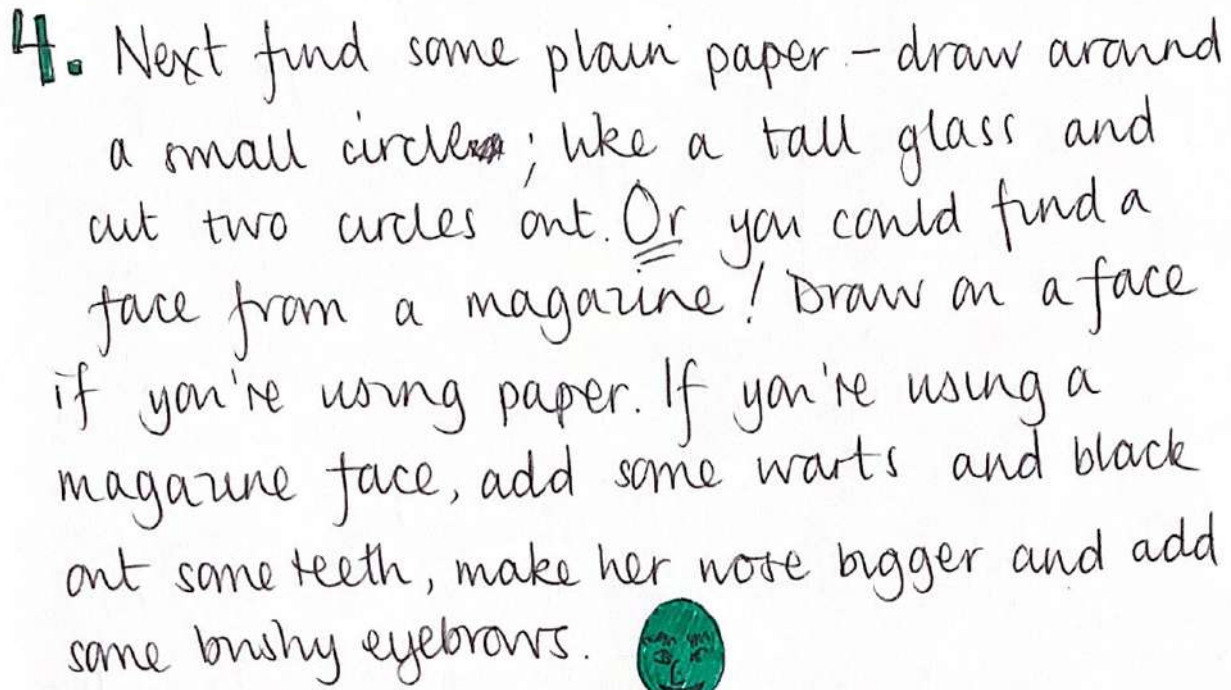 4. Next find some plain paper - draw around
a small circle; like a tall glass and
cut two circles out. Or you could find a
face from a magazine! Draw on a face
if you're using paper. If you're using a
magazine face, add some warts and black
out some teeth, make her nose bigger and add
some bushy eyebrows.